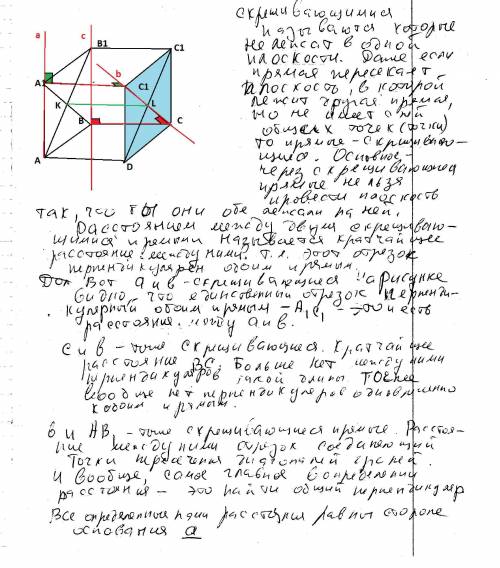 a
c
B1
C1
A1
b
C1
K
L
B
C
A
D
скрещивающимися
называются которые
не лежат в одной
плоскости. Даже если
прямая пересекает
плоскость, в которой
лежит другая прямая,
но не имеет с ней
общих точек (точки)
то прямые - скрещиваю-
щиеся. Основное -
через скрещивающиеся
прямые нельзя
провести плоскость
так, что бы они обе лежали на ней.
Расстоянием между двум скрещиваю-
щимися прямыми называется кратчайшее
расстояние между ними. Т.е. этот отрезок
перпендикулярен обоим прямым.
Вот а и в - скрещивающиеся на рисунке
видно, что единственный отрезок перпенди-
кулярный обоим прямым - A1C1 - это и есть
расстояние между а и в.
с и в - тоже скрещивающиеся. Кратчайшее
расстояние BC. Больше нет между ними
перпендикуляров такой длины. Точнее
вообще нет перпендикуляров одновременно
к обоим прямым.
в и AB1 - тоже скрещивающиеся прямые. Расстоя-
ние между ними отрезок соединяющий
точки пересечения диагоналей граней.
И вообще, самое главное в определении
расстояния - это найти общий перпендикуляр
Все определенные нами расстояния равны стороне
основания а